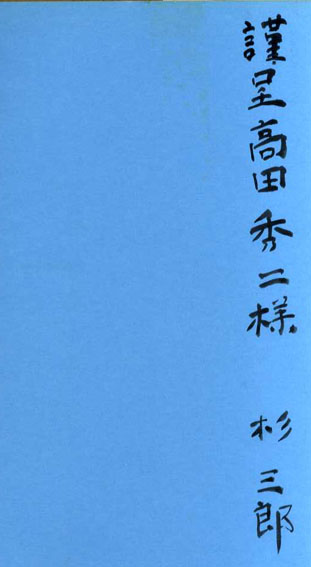 謹呈高田秀二様
杉三郎